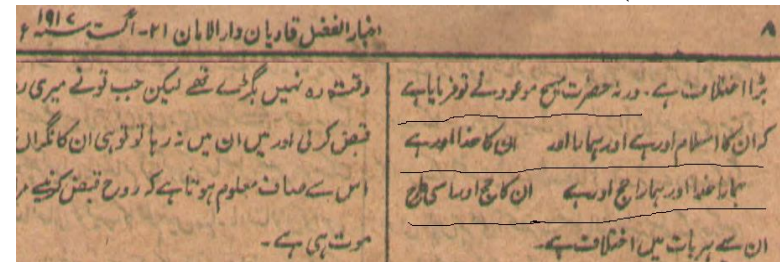 ۸
اخبار الفضل قادیان دارالامان ۲۱۔ اگست ۱۹۱۷ء
بڑا اختلاف ہے۔ ورنہ حضرت مسیح موعود نے تو فرمایا ہے
کہ ان کا اسلام اور ہے اور ہمارا اور ان کا خدا اور ہے
ہمارا خدا اور ہمارا حج اور ہے ان کا حج اور اسی طرح
ان سے ہر بات میں اختلاف ہے۔
وقت وہ نہیں بگڑے تھے لیکن جب تو نے میری
قبض کر لی اور میں ان میں نہ رہا تو تو ہی ان کا نگران
اس سے صاف معلوم ہوتا ہے کہ روح قبض کرنے
موت ہی ہے۔